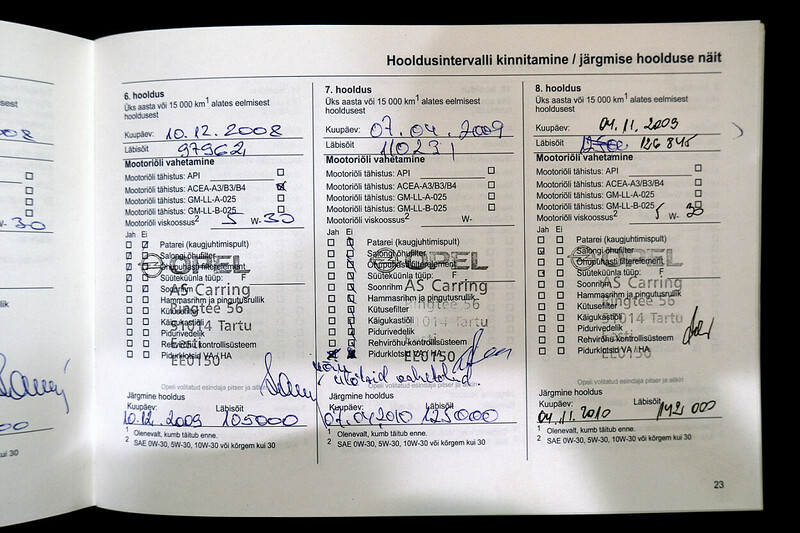 Hooldusintervalli kinnitamine / järgmise hoolduse näit
6. hooldus
Üks aasta või 15 000 km1 alates eelmisest
hooldusest
Kuupäev: 10.12.2008
Läbisõit 97962
Mootoriõli vahetamine
Mootoriõli tähistus: API
Mootoriõli tähistus: ACEA-A3/B3/B4
Mootoriõli tähistus: GM-LL-A-025
Mootoriõli tähistus: GM-LL-B-025
Mootoriõli viskoossus2 5 W- 30
Jah Ei
Patarei (kaugjuhtimispult)
Salongi õhufilter
Õhupuhasti filterelement
Süüteküünla tüüp: F
Soonrihm
Hammasrihm ja pingutusrullik
Kütusefilter
Käigukastiõli
Pidurivedelik
Rehvirõhu kontrollisüsteem
Pidurklotsid VA / HA
OPEL
AS Carring
Ringtee 56
51014 Tartu
Eesti
EE0150
Opeli volitatud esindaja pitser ja allkiri
Järgmine hooldus
Kuupäev: Läbisõit
10.12.2009 105000
1 Olenevalt, kumb täitub enne.
2 SAE 0W-30, 5W-30, 10W-30 või kõrgem kui 30
7. hooldus
Üks aasta või 15 000 km1 alates eelmisest
hooldusest
Kuupäev: 07.04.2009
Läbisõit 110231
Mootoriõli vahetamine
Mootoriõli tähistus: API
Mootoriõli tähistus: ACEA-A3/B3/B4
Mootoriõli tähistus: GM-LL-A-025
Mootoriõli tähistus: GM-LL-B-025
Mootoriõli viskoossus2 W-
Jah Ei
Patarei (kaugjuhtimispult)
Salongi õhufilter
Õhupuhasti filterelement
Süüteküünla tüüp: F
Soonrihm
Hammasrihm ja pingutusrullik
Kütusefilter
Käigukastiõli
Pidurivedelik
Rehvirõhu kontrollisüsteem
Pidurklotsid VA / HA
OPEL
AS Carring
Ringtee 56
51014 Tartu
EE0150
Opeli volitatud esindaja pitser ja allkiri
Järgmine hooldus
Kuupäev: Läbisõit
07.04.2010 125000
1 Olenevalt, kumb täitub enne.
2 SAE 0W-30, 5W-30, 10W-30 või kõrgem kui 30
8. hooldus
Üks aasta või 15 000 km1 alates eelmisest
hooldusest
Kuupäev: 04.11.2009
Läbisõit 126845
Mootoriõli vahetamine
Mootoriõli tähistus: API
Mootoriõli tähistus: ACEA-A3/B3/B4
Mootoriõli tähistus: GM-LL-A-025
Mootoriõli tähistus: GM-LL-B-025
Mootoriõli viskoossus2 5 W- 30
Jah Ei
Patarei (kaugjuhtimispult)
Salongi õhufilter
Õhupuhasti filterelement
Süüteküünla tüüp: F
Soonrihm
Hammasrihm ja pingutusrullik
Kütusefilter
Käigukastiõli
Pidurivedelik
Rehvirõhu kontrollisüsteem
Pidurklotsid VA / HA
OPEL
AS Carring
Ringtee 56
51014 Tartu
EE0150
Opeli volitatud esindaja pitser ja allkiri
Järgmine hooldus
Kuupäev: Läbisõit
04.11.2010 142 000
1 Olenevalt, kumb täitub enne.
2 SAE 0W-30, 5W-30, 10W-30 või kõrgem kui 30
23